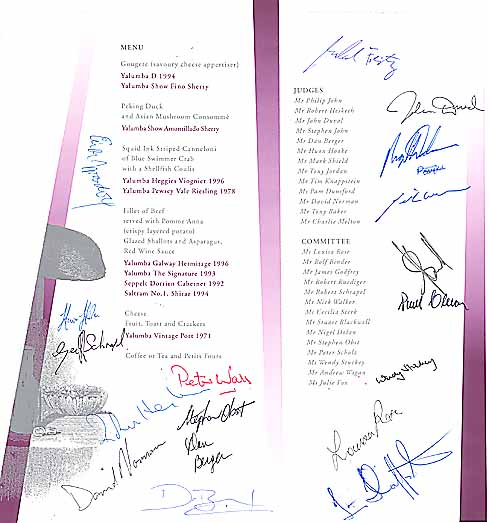 MENU
Gougere (savoury cheese appertiser)
Yalumba D 1994
Yalumba Show Fino Sherry
Peking Duck
and Asian Mushroom Consommé
Yalumba Show Amontillado Sherry
Squid Ink Striped Canneloni
of Blue Swimmer Crab
with a Shellfish Coulis
Yalumba Heggies Viognier 1996
Yalumba Pewsey Vale Riesling 1978
Fillet of Beef
served with Pomme Anna
(crispy layered potato)
Glazed Shallots and Asparagus,
Red Wine Sauce
Yalumba Galway Hermitage 1996
Yalumba The Signature 1993
Seppelt Dorrien Cabernet 1992
Saltram No.1, Shiraz 1994
Cheese
Fruit, Toast and Crackers
Yalumba Vintage Port 1971
Coffee or Tea and Petits Fours
Geoff Schrapel
Peter Wall
Stephen Obst
Dan
Berger
David Norman
JUDGES
Mr Philip John
Mr Robert Hesketh
Mr John Duval
Mr Stephen John
Mr Dan Berger
Mr Huon Hooke
Mr Mark Shield
Mr Tony Jordan
Mr Tim Knappstein
Mr Pam Dunsford
Mr David Norman
Mr Tony Baker
Mr Charlie Melton
COMMITTEE
Ms Louisa Rose
Mr Rolf Binder
Mr James Godfrey
Mr Robert Ruediger
Mr Robert Schrapel
Mr Nick Walker
Ms Cecilia Sterk
Mr Stuart Blackwell
Mr Nigel Dolan
Mr Stephen Obst
Mr Peter Scholz
Ms Wendy Stuckey
Mr Andrew Wigan
Ms Julie Fox
John Duval
Wendy Stuckey
Louisa Rose